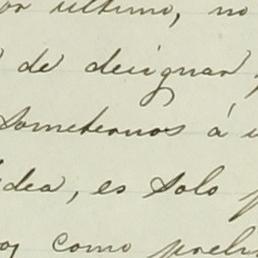 or ultimo, no
de designar
someternos á
idea, es solo
como prelu